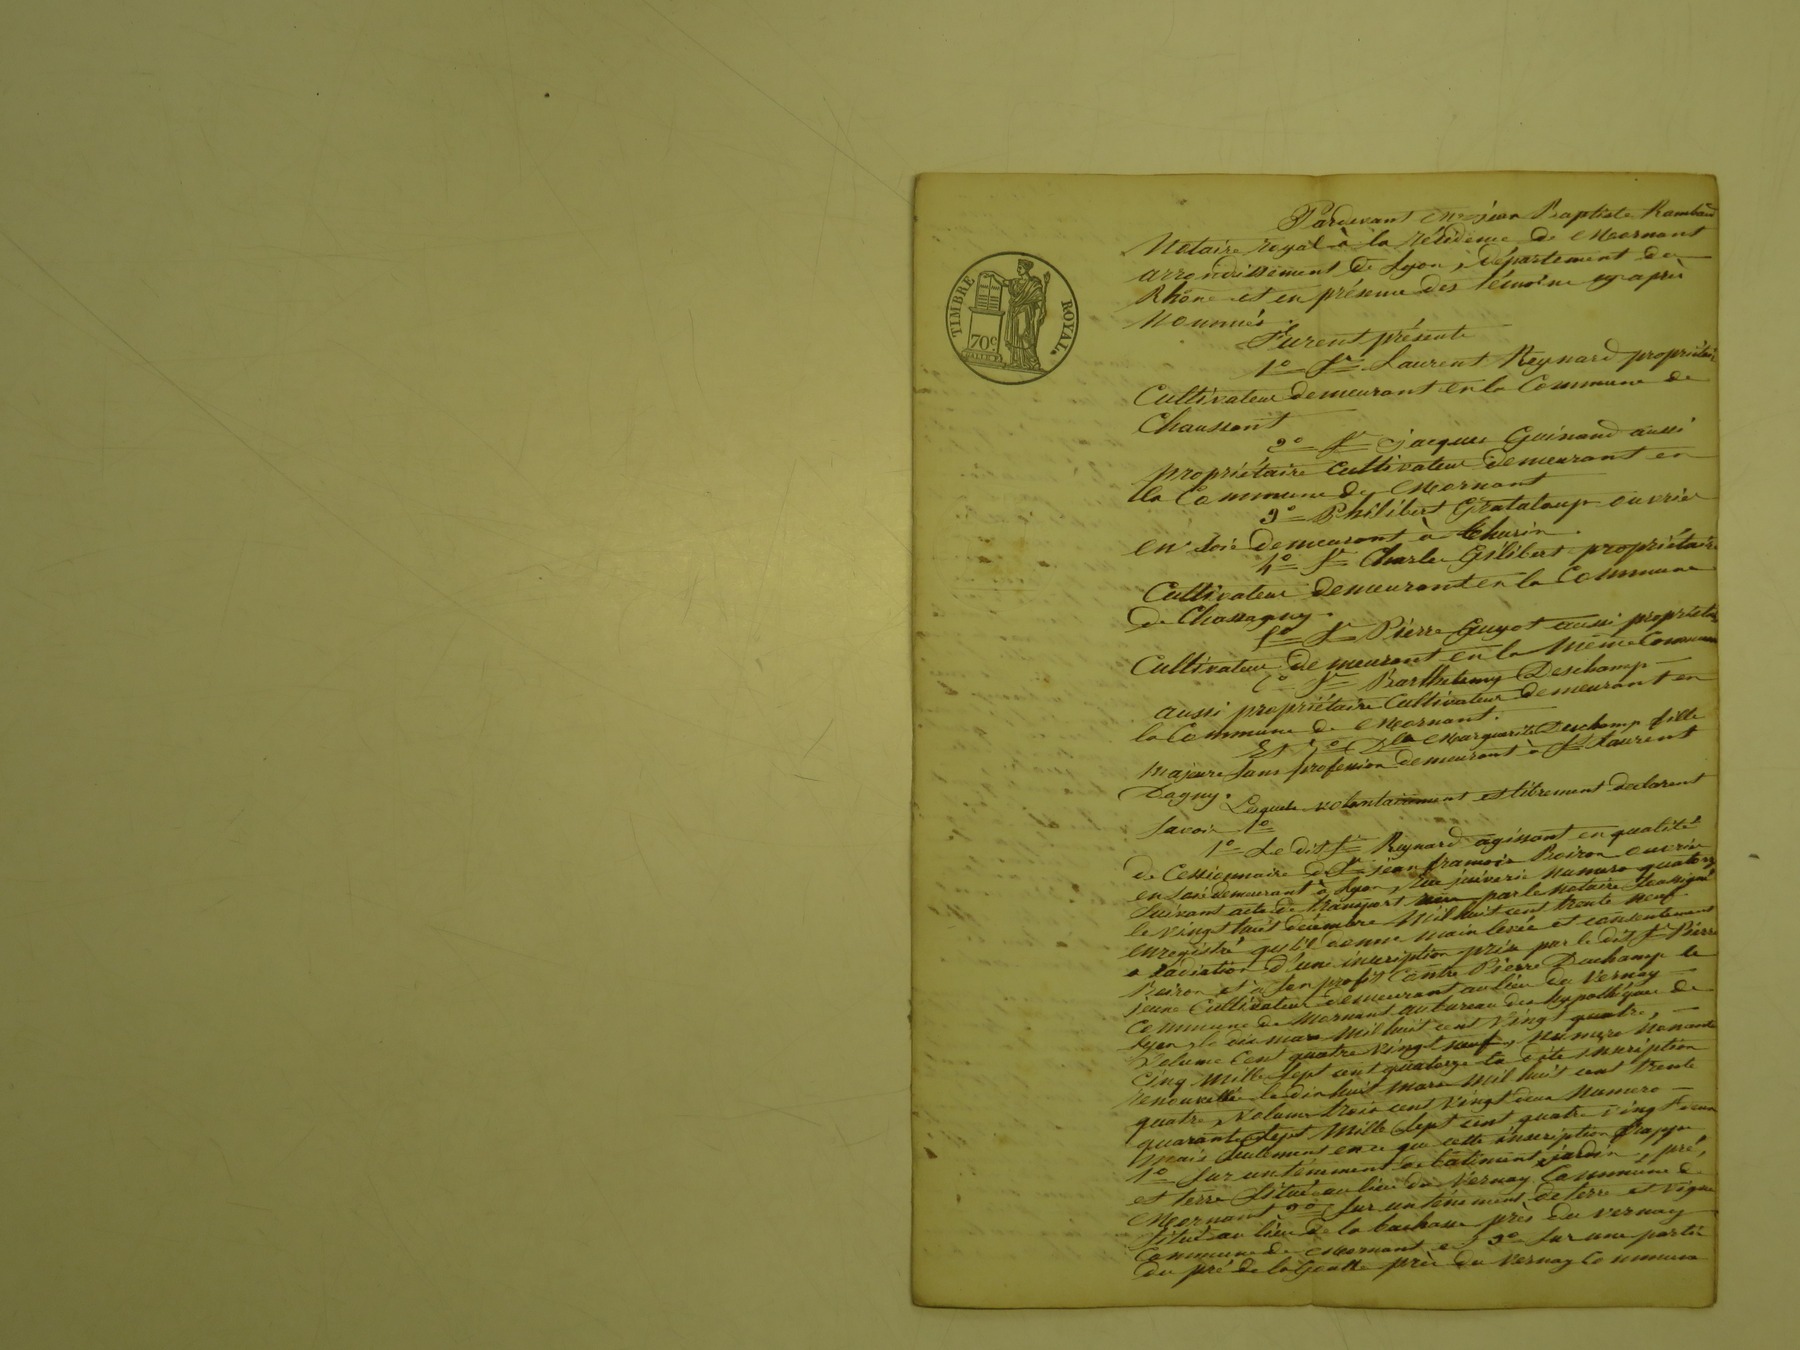 TIMBRE ROYAL.
70c.
Pardevant Me jean Baptiste Rambaud
Notaire royal à la résidence de Mornant
arrondissement de Lyon, département du
Rhône et en présence des témoins cy après
Nommés.
Furent présents
1o Sr Laurent Reynard propriétaire
Cultivateur demeurant en la Commune de
Chaussant
2o Sr jacques Guinand aussi
propriétaire Cultivateur demeurant en
la Commune de Mornant
3o Philibert Grataloup ouvrier
en soie demeurant à thurin.
4o Sr Charle Gilibert propriétaire
Cultivateur demeurant en la Commune
de Chassagny.
5o Sr Pierre Guyot aussi propriétaire
Cultivateur demeurant en la même Commune
6o Sr Barthelemy Deschamp
aussi propriétaire Cultivateur demeurant en
la Commune de Mornant.
Et 7o Dlle Marguerite Deschamp fille
Majeure sans profession demeurant à St Laurent
Dagny.
Lesquels volontairement et librement declarent
Savoir
1o Le dit Sr Reynard agissant en qualité
de Cessionnaire de Sr jean francois Boiron ouvrier
en soie demeurant à Lyon, rue juiverie numero quatorze
Suivant acte de transport reçu par le notaire soussigné
le vingt huit décembre Mil huit cent trente neuf
enregistré qu'il donne main levée et consentement
a radiation d'une inscription prise par le dit Sr Pierre
Boiron et à son profit Contre Pierre Deschamp le
jeune Cultivateur demeurant au lieu du Vernay
Commune de Mornant au bureau des hypothèques de
Lyon, le dix mars Mil huit cent vingt quatre,
Volume Cent quatre vingt neuf, Numero Nonante
Cinq Mille sept cent quatorze la dite inscription
renouvellée le dix huit mars Mil huit cent trente
quatre, Volume trois cent vingt deux Numero
quarante sept Mille sept cent quatre vingt
Mais seulement en ce que cette inscription frappe
1o Sur un tenement de batiment, jardin, pré,
et terre Situé au lieu du Vernay Commune de
Mornant 2o Sur un tenement de terre et vigne
Situé au lieu de la près du vernay
Commune de Mornant et 3o Sur une partie
du pré de la Goutte près du Vernay Commune